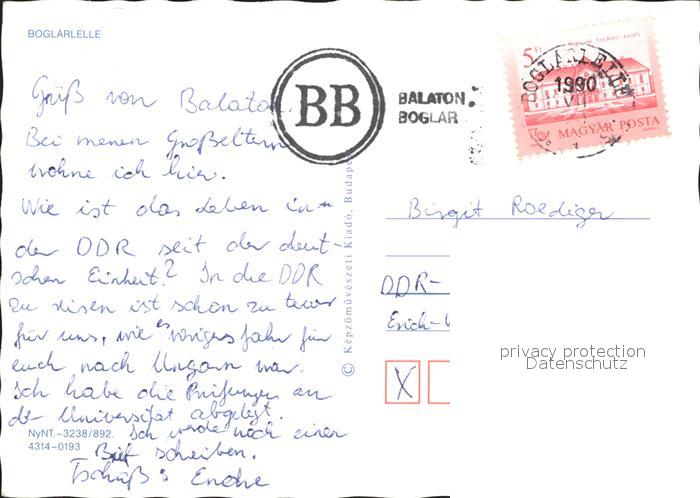 BOGLÁRLELLE
Grüß von Balaton.
Bei meinen Großeltern
wohne ich hier.
Wie ist das Leben in
der DDR seit der deut-
schen Einheit? In die DDR
zu reisen ist schon zu teuer
für uns, wie es voriges Jahr für
euch nach Ungarn war.
Ich habe die Prüfungen an
der Universität abgelegt.
Ich werde noch einen
Brief schreiben.
Tschüß: Endre
NyNT.–3238/892.
4314–0193
© Képzőművészeti Kiadó, Budapest
BB
BALATON
BOGLÁR
5 Ft
BOGLÁRLELLE
1990
MAGYAR POSTA
Birgit Roediger
DDR-
Erich-
X
privacy protection
Datenschutz